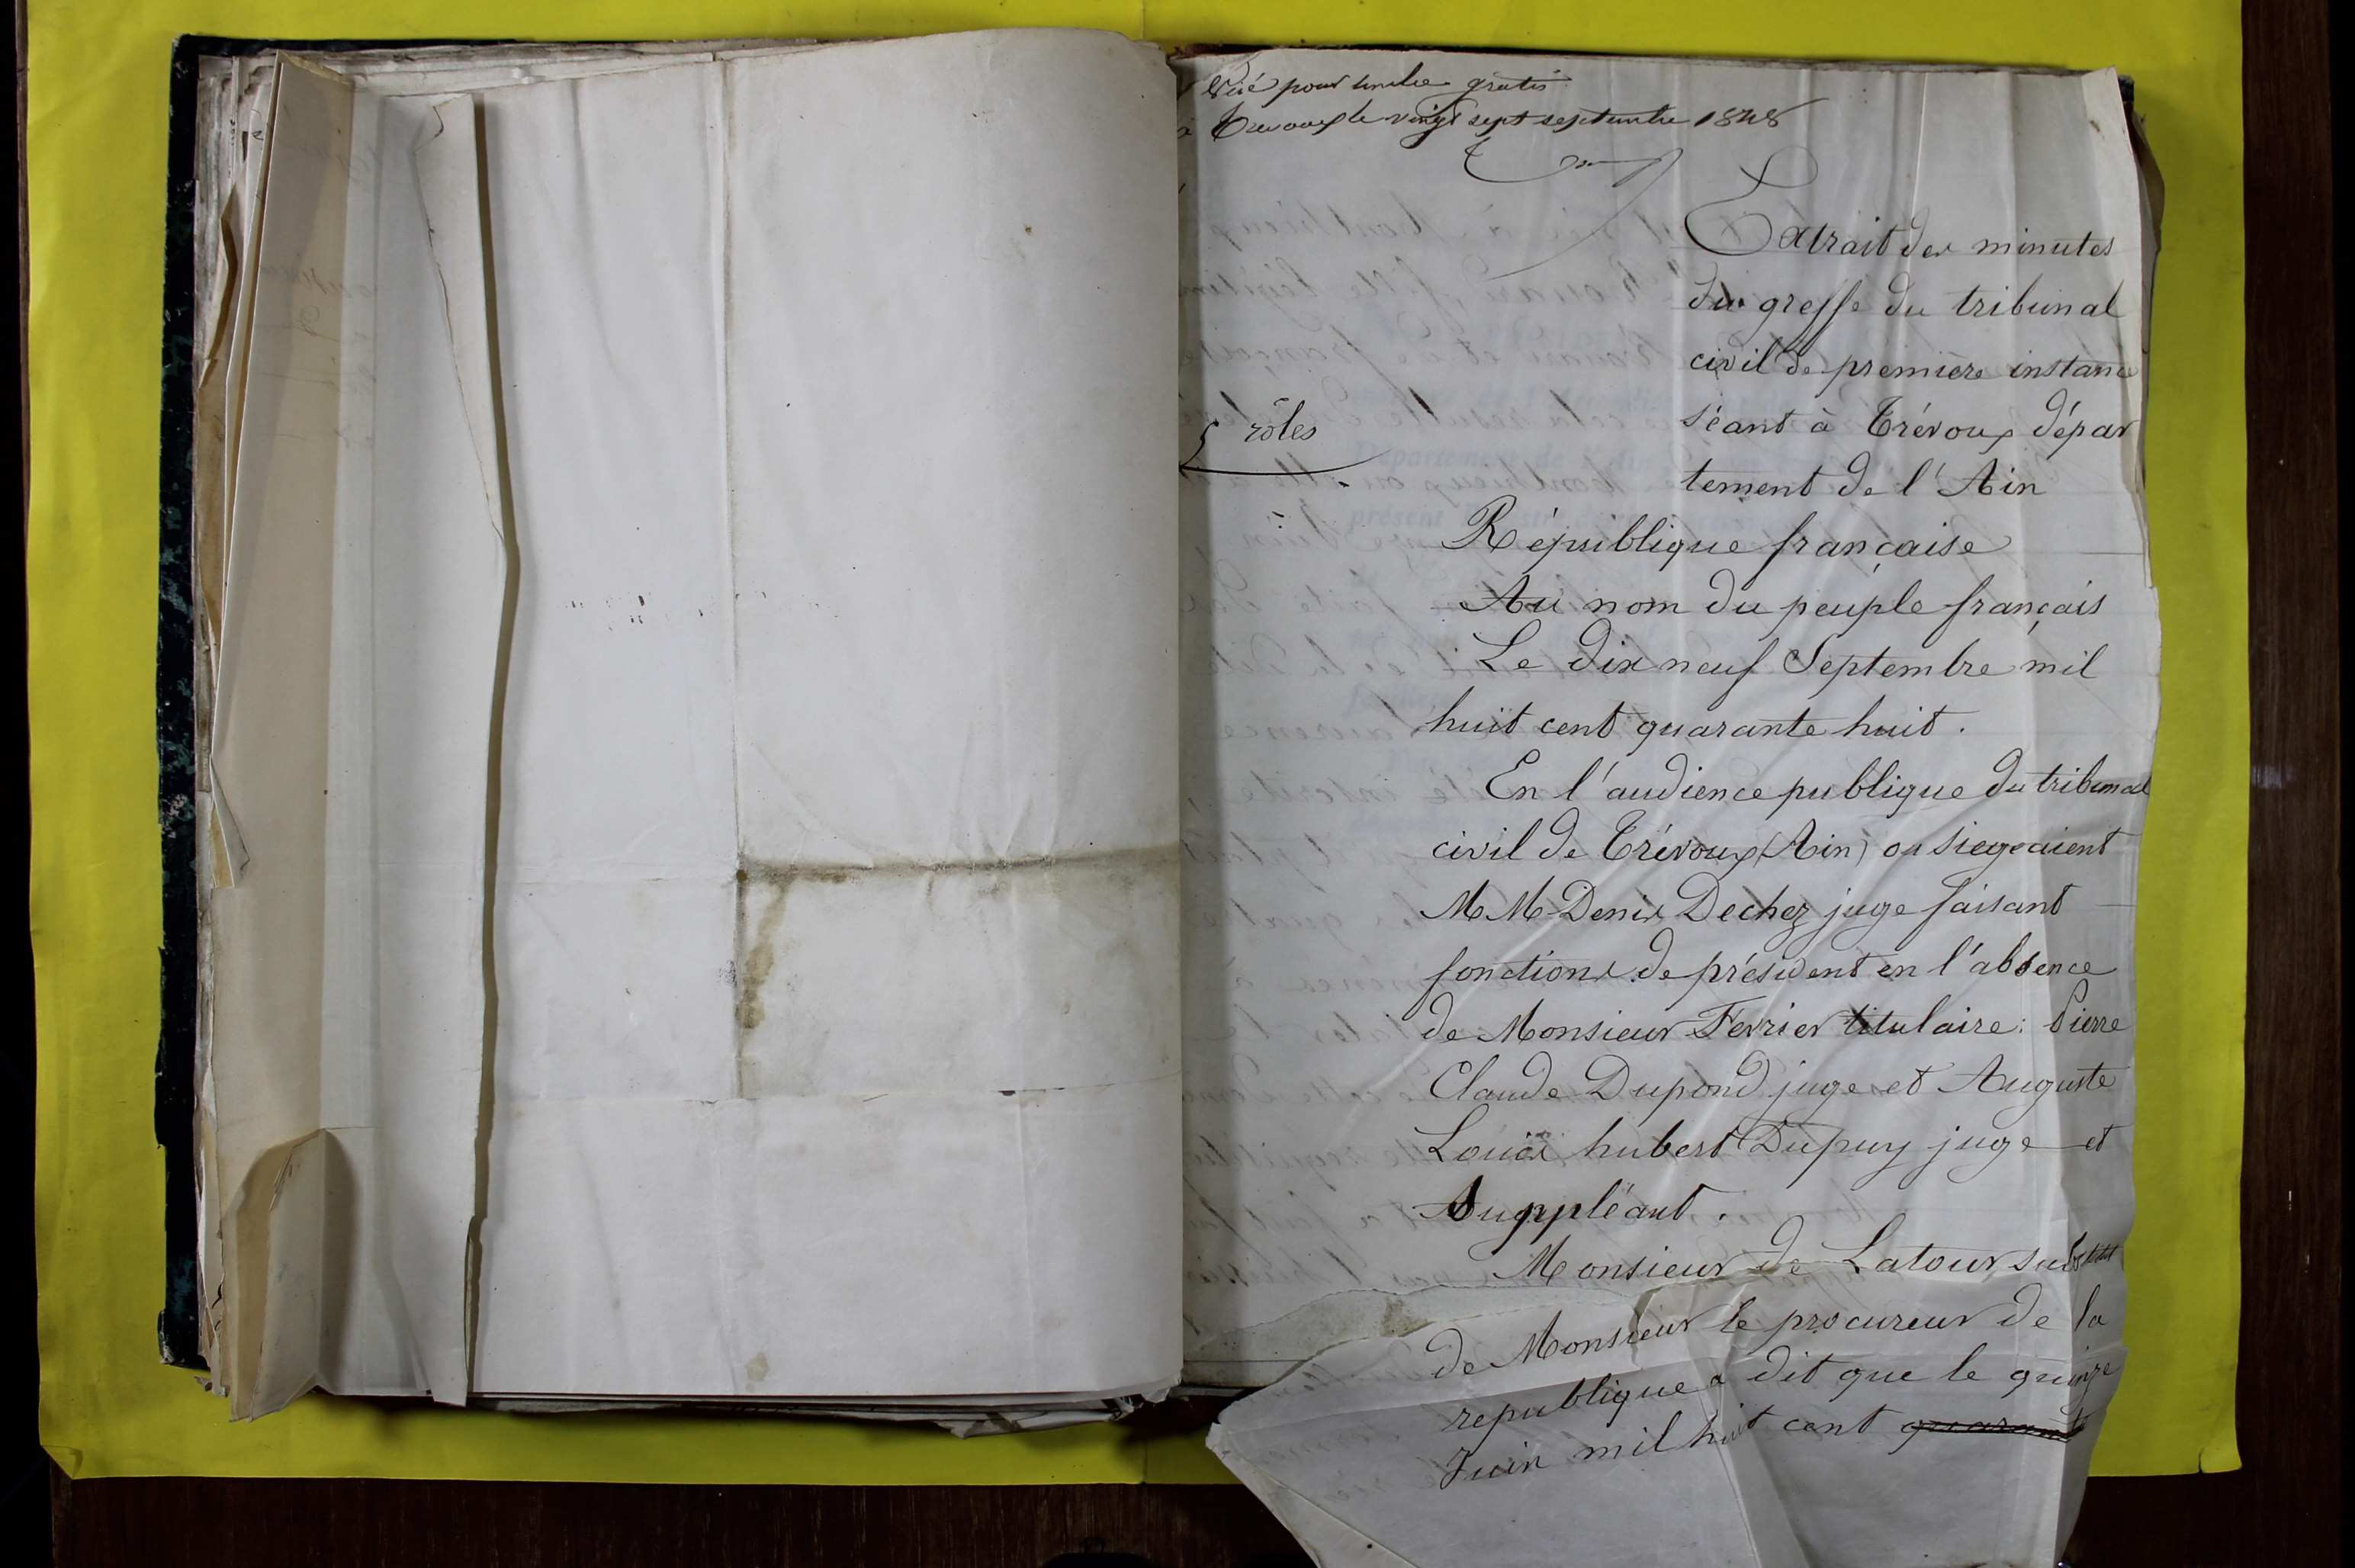 Visé pour timbre gratis
à Trevoux le vingt sept septembre 1848
Extrait des minutes
du greffe du tribunal
civil de premiere instance
séant à Trévoux dépar
tement de l'Ain
5 rôles
République française
Au nom du peuple français
Le dix neuf Septembre mil
huit cent quarante huit.
En l'audience publique du tribunal
civil de Trévoux (Ain) ou siegeaient
MM Denis Dechez juge faisant
fonctions de président en l'absence
de Monsieur Ferrier titulaire: Pierre
Claude Dupond juge et Auguste
Louis hubert Dupuy juge et
Suppléant.
Monsieur de Latour substitut
de Monsieur le procureur de la
republique a dit que le quinze
Juin mil huit cent quarante